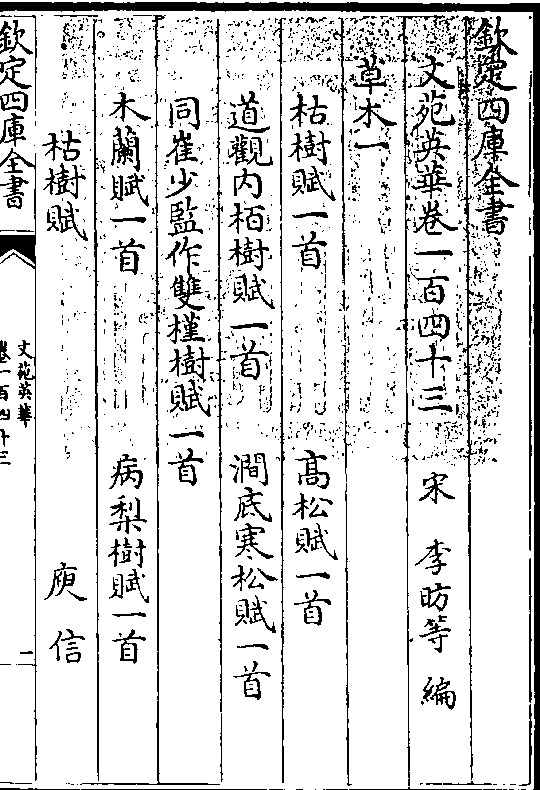 欽定四庫全書
文苑英華卷一百四十三 宋 李昉等 編
草木一
枯樹賦一首 高松賦一首
道觀内栢樹賦一首 澗底寒松賦一首
同崔少監作雙槿樹賦一首
木蘭賦一首 病梨樹賦一首
枯樹賦 庾信
欽定四庫全書
文苑英華
卷一百四十三
二